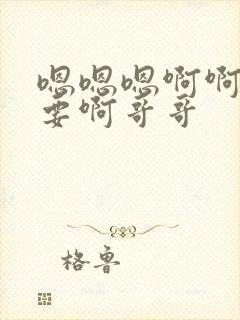 嗯嗯嗯啊啊
要啊哥哥
格鲁